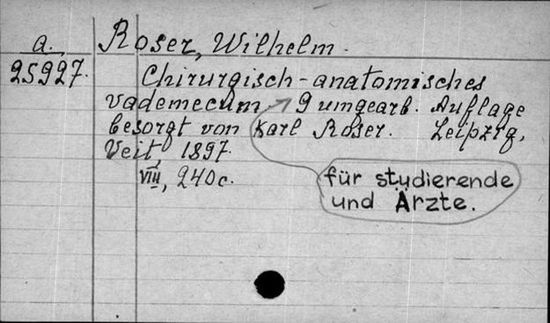 a. Roser, Wilhelm.
25927. Chirurgisch-anatomisches
vademecum 9 umgearb. Auflage
besorgt von Karl Roser. Leipzig,
Veit, 1897.
VIII, 240 c.
für studierende
und Ärzte.